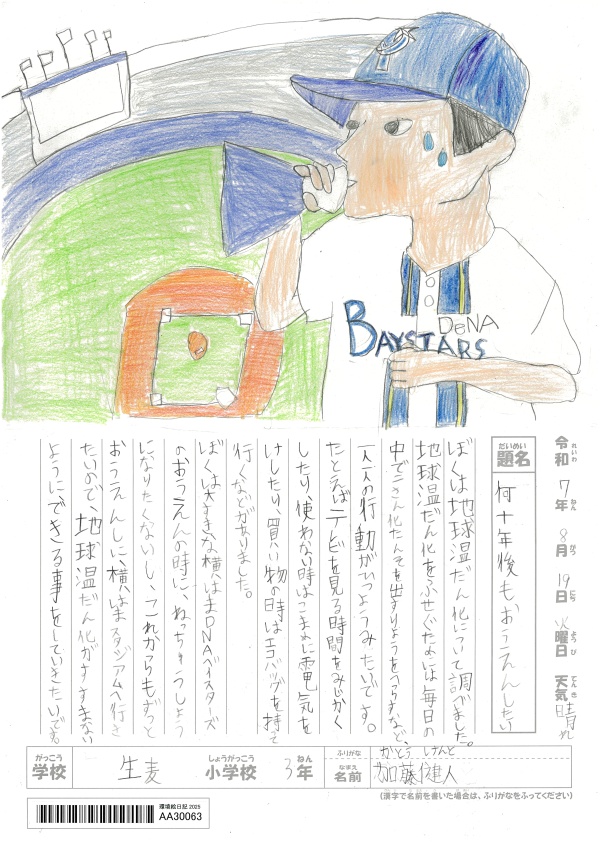 DeNA
BAYSTARS
令和7年8月19日火曜日 天気晴れ
れいわ ねん がつ にち ようび てんき
だいめい
題名 何十年後もおうえんしたい
ぼくは地球温だん化について調べました。
地球温だん化をふせぐためには毎日の
中で二さん化たんそを出すりようをへらすなど、
一人一人の行動がひつようみたいです。
たとえばテレビを見る時間をみじかく
したり、使わない時はこまめに電気を
けしたり、買い物の時はエコバッグを持って
行くなどがありました。
ぼくは大すきな横はまDNAベイスターズ
のおうえんの時に、ねっちゅうしょう
になりたくないし、これからもずっと
おうえんしに、横はまスタジアムへ行き
たいので、地球温だん化がすすまない
ようにできる事をしていきたいです。
がっこう しょうがっこう ねん ふりがな かとう けんと
学校 生麦 小学校 3年 なまえ 名前 加藤健人
(漢字で名前を書いた場合は、ふりがなをふってください)
環境絵日記 2025
AA30063